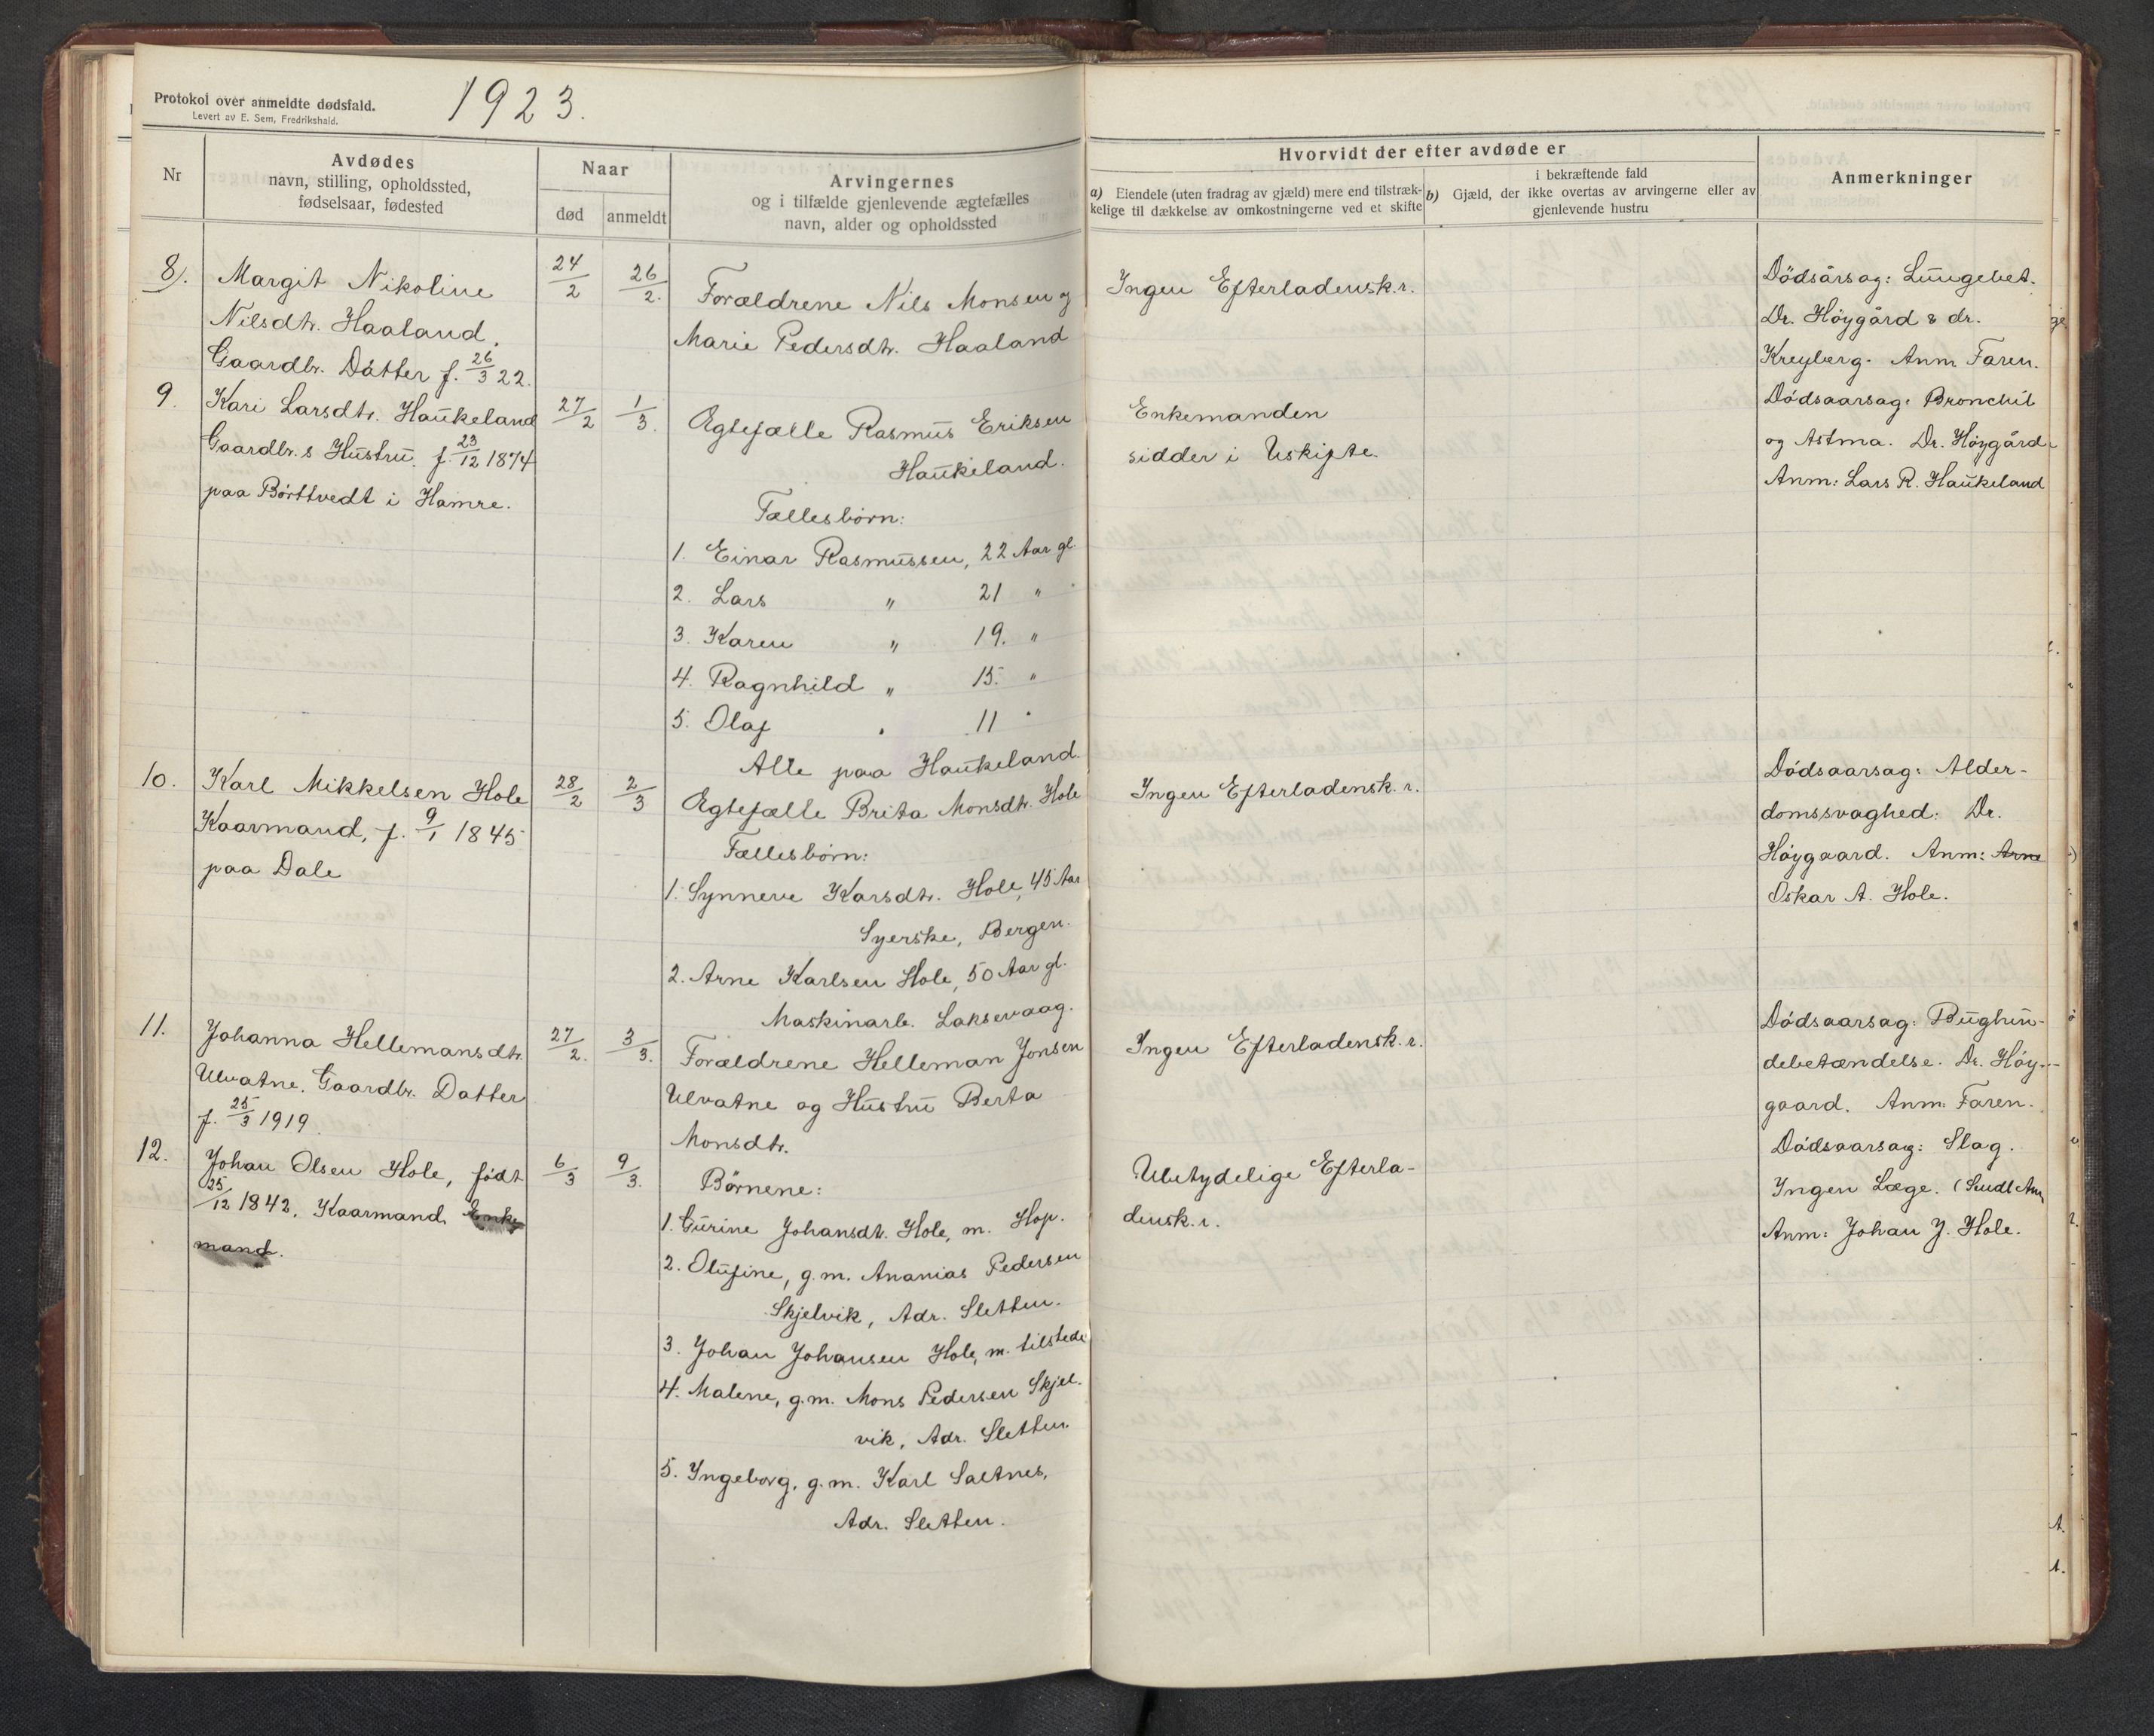 Protokol over anmeldte dødsfald.
Levert av E. Sem, Fredrikshald.
1923.
Nr
Avdødes
navn, stilling, opholdssted,
fødselsaar, fødested
Naar
død
anmeldt
Arvingernes
og i tilfælde gjenlevende ægtefælles
navn, alder og opholdssted
Hvorvidt der efter avdøde er
a) Eiendele (uten fradrag av gjæld) mere end tilstræk-
kelige til dækkelse av omkostningerne ved et skifte
i bekræftende fald
b) Gjæld, der ikke overtas av arvingerne eller av
gjenlevende hustru
Anmerkninger
8).
Margit Nikoline
Nilsdtr. Haaland.
Gaardbr. Datter f. 26/3 22.
24/2
26/2.
Forældrene Nils Monsen og
Marie Pedersdtr. Haaland
Ingen Efterladensk.r.
Dødsårsag: Lungebet.
Dr. Höygård & dr.
Kreyberg. Anm Faren.
9.
Kari Larsdtr. Haukeland
Gaardbr.s Hustru. f. 23/12 1874
paa Börttvedt i Hamre.
27/2
1/3.
Ægtefælle Rasmus Eriksen
Haukeland.
Fællesbörn:
1. Einar Rasmussen, 22 Aar gl.
2. Lars " 21 "
3. Karen " 19. "
4. Ragnhild " 15. "
5. Olaf " 11 "
Alle paa Haukeland.
Enkemanden
sidder i Uskifte.
Dødsaarsag: Bronchit
og Astma. Dr. Höygård
Anm: Lars R. Haukeland
10.
Karl Mikkelsen Hole
Kaarmand, f. 9/1 1845
paa Dale
28/2
2/3
Ægtefælle Brita Monsdtr. Hole
Fællesbörn:
1. Synneve Karsdtr. Hole, 45 Aar
Syerske, Bergen.
2. Arne Karlsen Hole, 50 Aar gl.
Maskinarb. Laksevaag.
Ingen Efterladensk.r.
Dödsaarsag: Alder-
domssvaghed: Dr.
Höygaard. Anm: Arne
Oskar A. Hole.
11.
Johanna Hellemansdtr.
Ulvatne. Gaardbr. Datter
f. 25/3 1919.
27/2.
3/3.
Forældrene Helleman Jonsen
Ulvatne og Hustru Berta
Monsdtr.
Ingen Efterladensk.r.
Dödsaarsag: Bughin-
debetændelse. Dr. Höy-
gaard. Anm: Faren.
12.
Johan Olsen Hole, født
25/12 1842. Kaarmand. Enke
mand.
6/3
9/3.
Börnene:
1. Gurine Johansdtr. Hole, m. Hop.
2. Olufine, g.m. Ananias Pedersen
Skjelvik, Adr. Sletten.
3. Johan Johansen Hole, m. tilstede
4. Malene, g.m. Mons Pedersen Skjel-
vik, Adr. Sletten.
5. Ingeborg, g.m. Karl Saltnes,
Adr. Sletten.
Ubetydelige Efterla-
densk.r.
Dödsaarsag: Slag.
Ingen Læge.
Anm: Johan J. Hole.